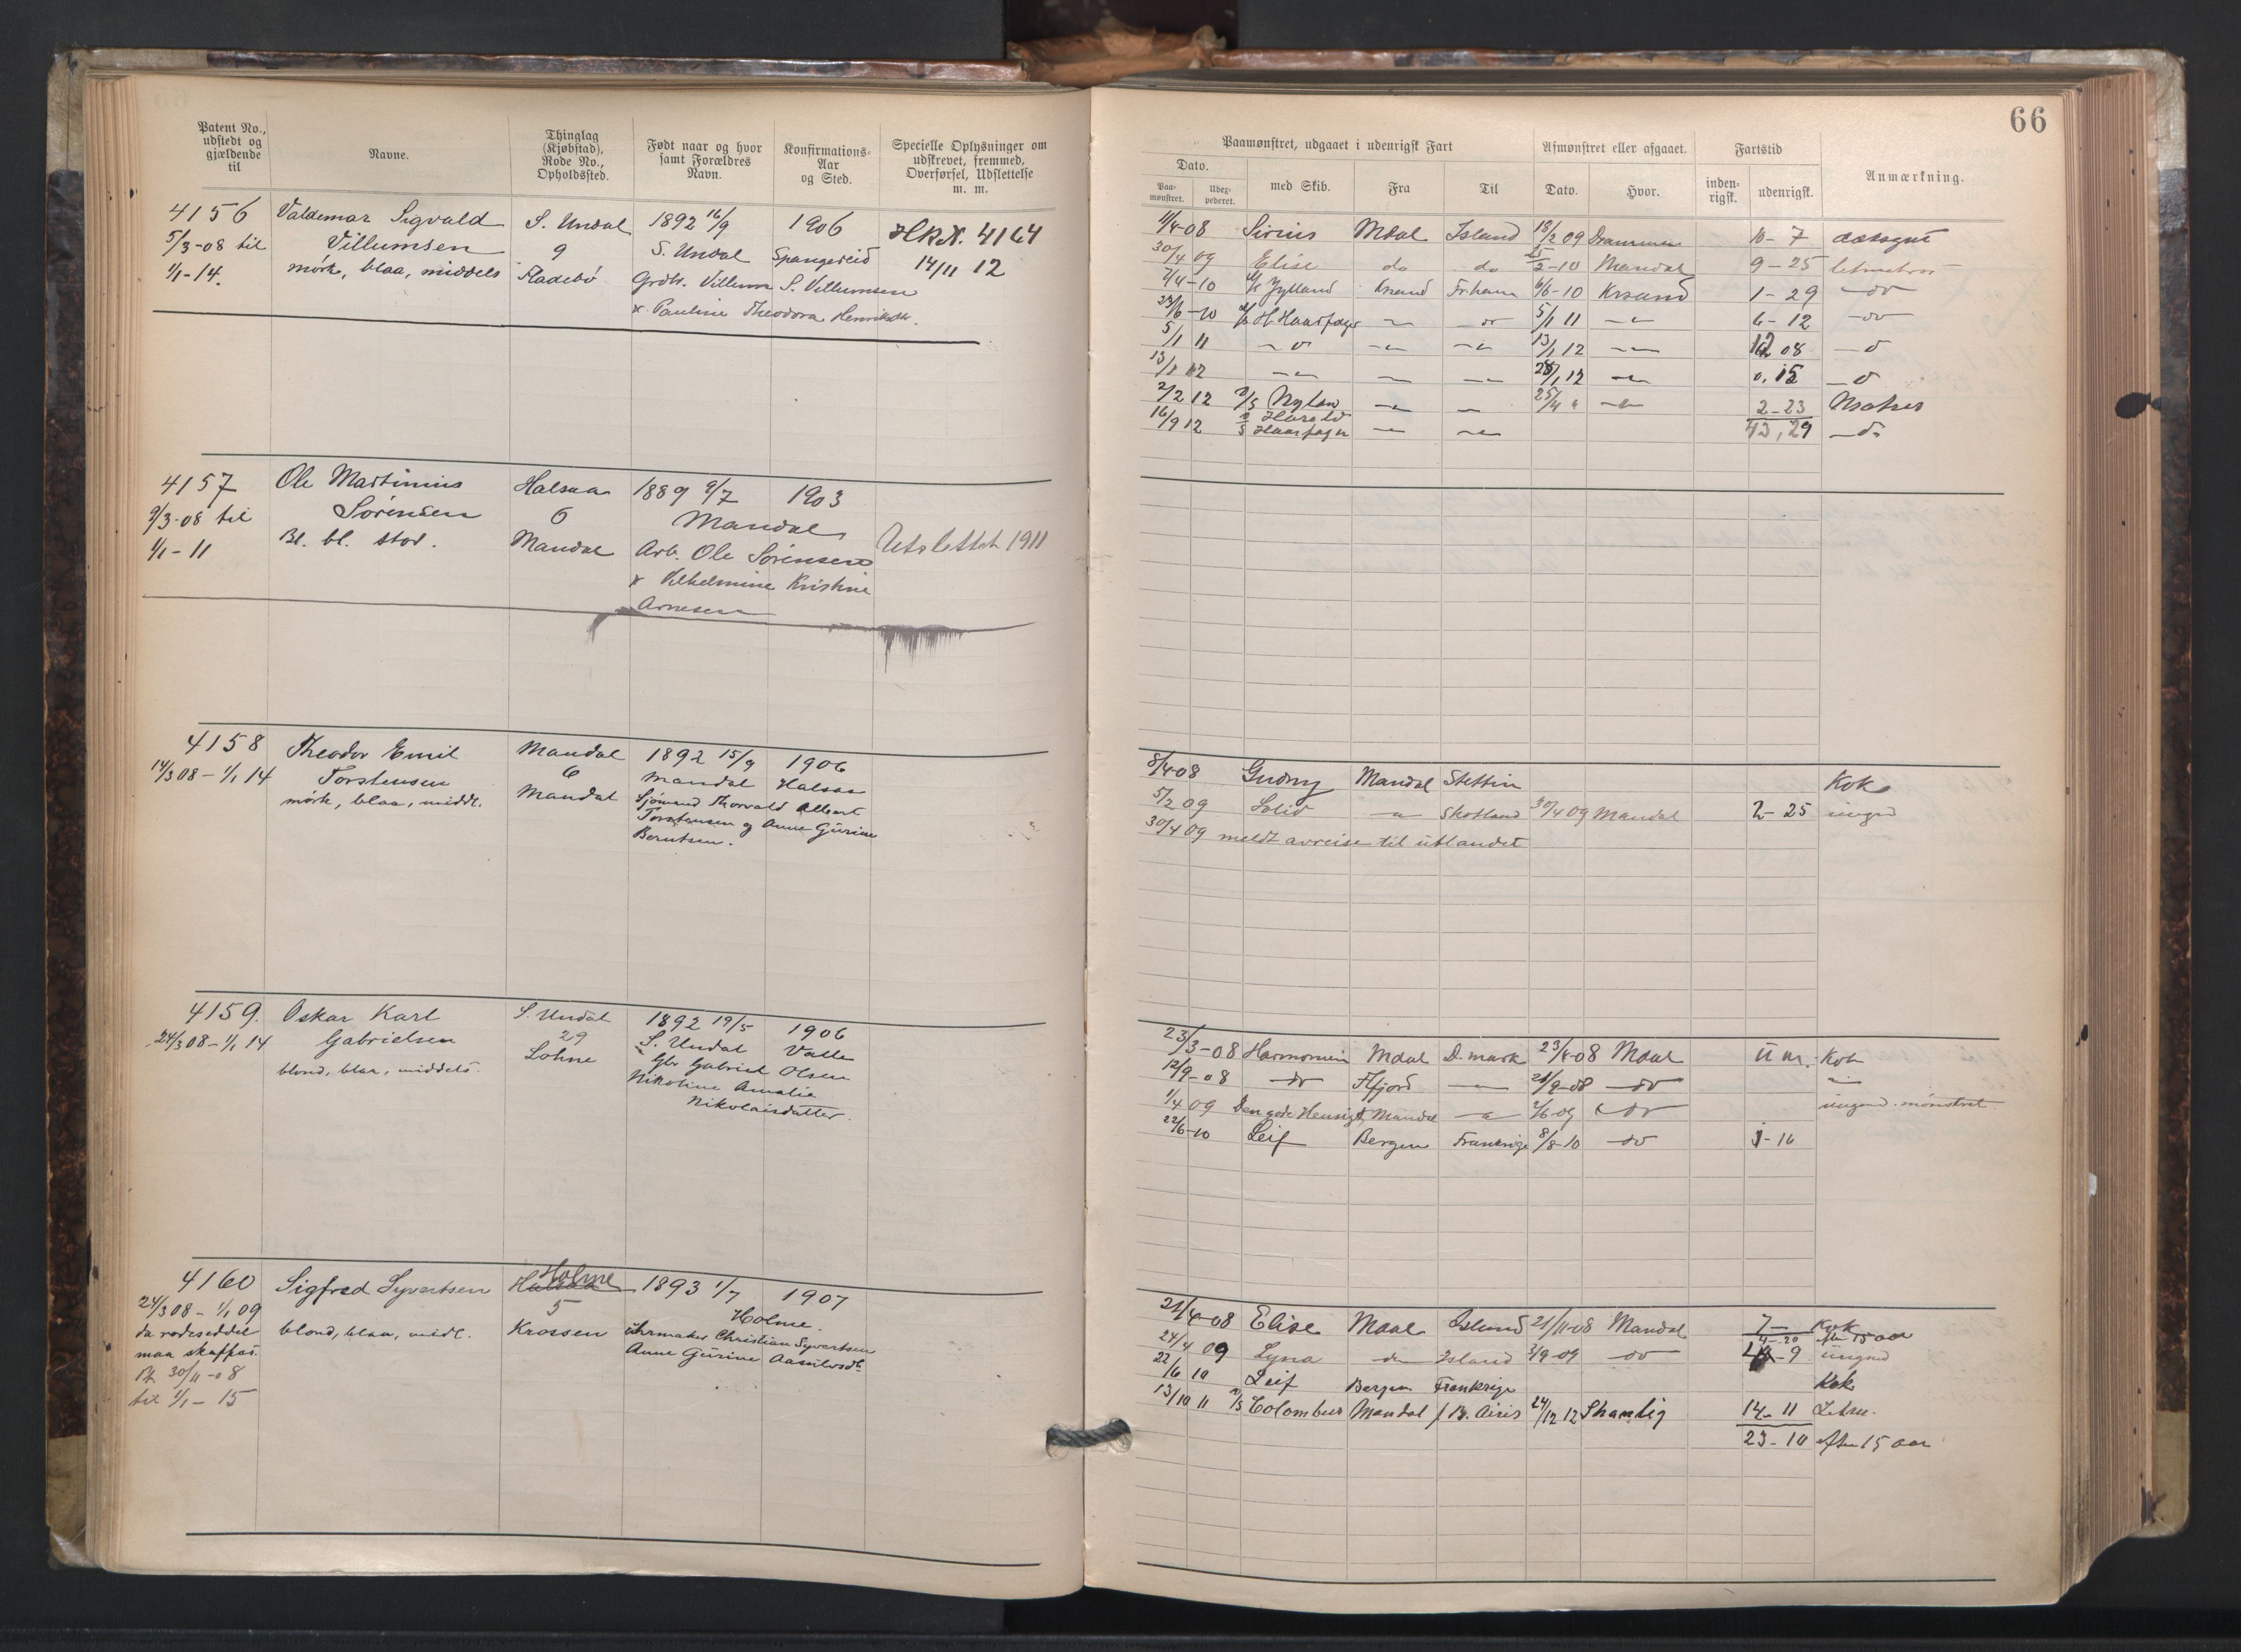 66
Patent No., udstedt og gjældende til
Navne.
Thinglag (Kjøbstad), Rode No., Opholdssted.
Født naar og hvor samt Forældres Navn.
Konfirmations-Aar og Sted.
Specielle Oplysninger om udskrevet, fremmed, Overførsel, Udslettelse m. m.
Paamønstret, udgaaet i udenrigsk Fart
Afmønstret eller afgaaet.
Fartstid
Anmærkning.
Dato.
Paa-mønstret.
Uder-pederet.
med Skib.
Fra
Til
Dato.
Hvor.
inden-rigsk.
udenrigsk.
4156 Valdemar Sigvald S. Undal 1892 16/9 1906 4164
5/3-08 til Villumsen 9 S. Undal Spangereid 14/11 12
1/1-14. mørk, blaa, middels Fladebø Grdbr. Villum S. Villumsen
x Pauline Theodora
4157 Ole Martinius Halsaa 1889 9/7 1903
9/3-08 til Sørensen 6 Mandal
1/1-11 Bl. bl. stor. Mandal Arb. Ole Sørensen Utslettet 1911
x Vilhelmine Kristine
Arnesen
4158 Theodor Emil Mandal 1892 15/9 1906
14/3 08 - 1/1 14 Torstensen 6 Mandal Halsaa
mørk, blaa, middl. Mandal Sjømand Thorvald Albert
Torstensen og Anne Gurine
Berntsen.
4159. Oskar Karl S. Undal 1892 19/5 1906
24/3 08 - 1/1 14 Gabrielsen 29 S. Undal Valle
blond, blaa, middels. Lohne Gbr Gabriel Olsen
Nikoline Amalie
Nikolaisdatter.
4160 Sigfred Syvertsen Halsaa Holme 1893 1/7 1907
24/3 08 - 1/1 09 5 Holme.
da rodeseddel blond, blaa, midl. Krossen Uhrmaker Christian Syvertsen
maa skaffes. Anne Gurine
30/11-08
til 1/1-15
11/4-08 Sirius Mdal Island 18/2 09 Drammen 10-7
30/4 09 Elise do do 2-10 Mandal 9-25
7/4-10 Jylland Krsand Fr.havn 6/6-10 Krsand 1-29 do
-10 H. Haarfager 5/1 11 6-12 do
5/1 11 13/1 12 08
13/1 12 28/1 12 0, 15
2/2 12 25/4 2-23
16/9 12 Harald Haarfager 43, 29
8/4-08 Gudny Mandal Stettin Kok
5/2 09 Solid Skotland 30/4 09 Mandal 2-25 ungnd
30/4 09 meldt avreise til utlandet
23/3-08 Harmonien Mdal D.mark 23/4-08 Mdal Kok
12/9-08 do Fl.fjord 28/9-08 do
1/4 09 Den gode Hensigt Mandal 2/6-09 do ungnd. mønstret
22/6-10 Leif Bergen Frankrige 8/8-10 do 1-16
21/4-08 Elise Mdal Island 21/11-08 Mandal 7- Kok
4-20 efter 15 aar
24/4 09 Lyna do Island 3/9-09 do 4-9 ungnd
22/6 10 Leif Bergen Frankrige Kok
13/10 11 Colombus Mandal 24/12 12 14-11
23-10 efter 15 aar